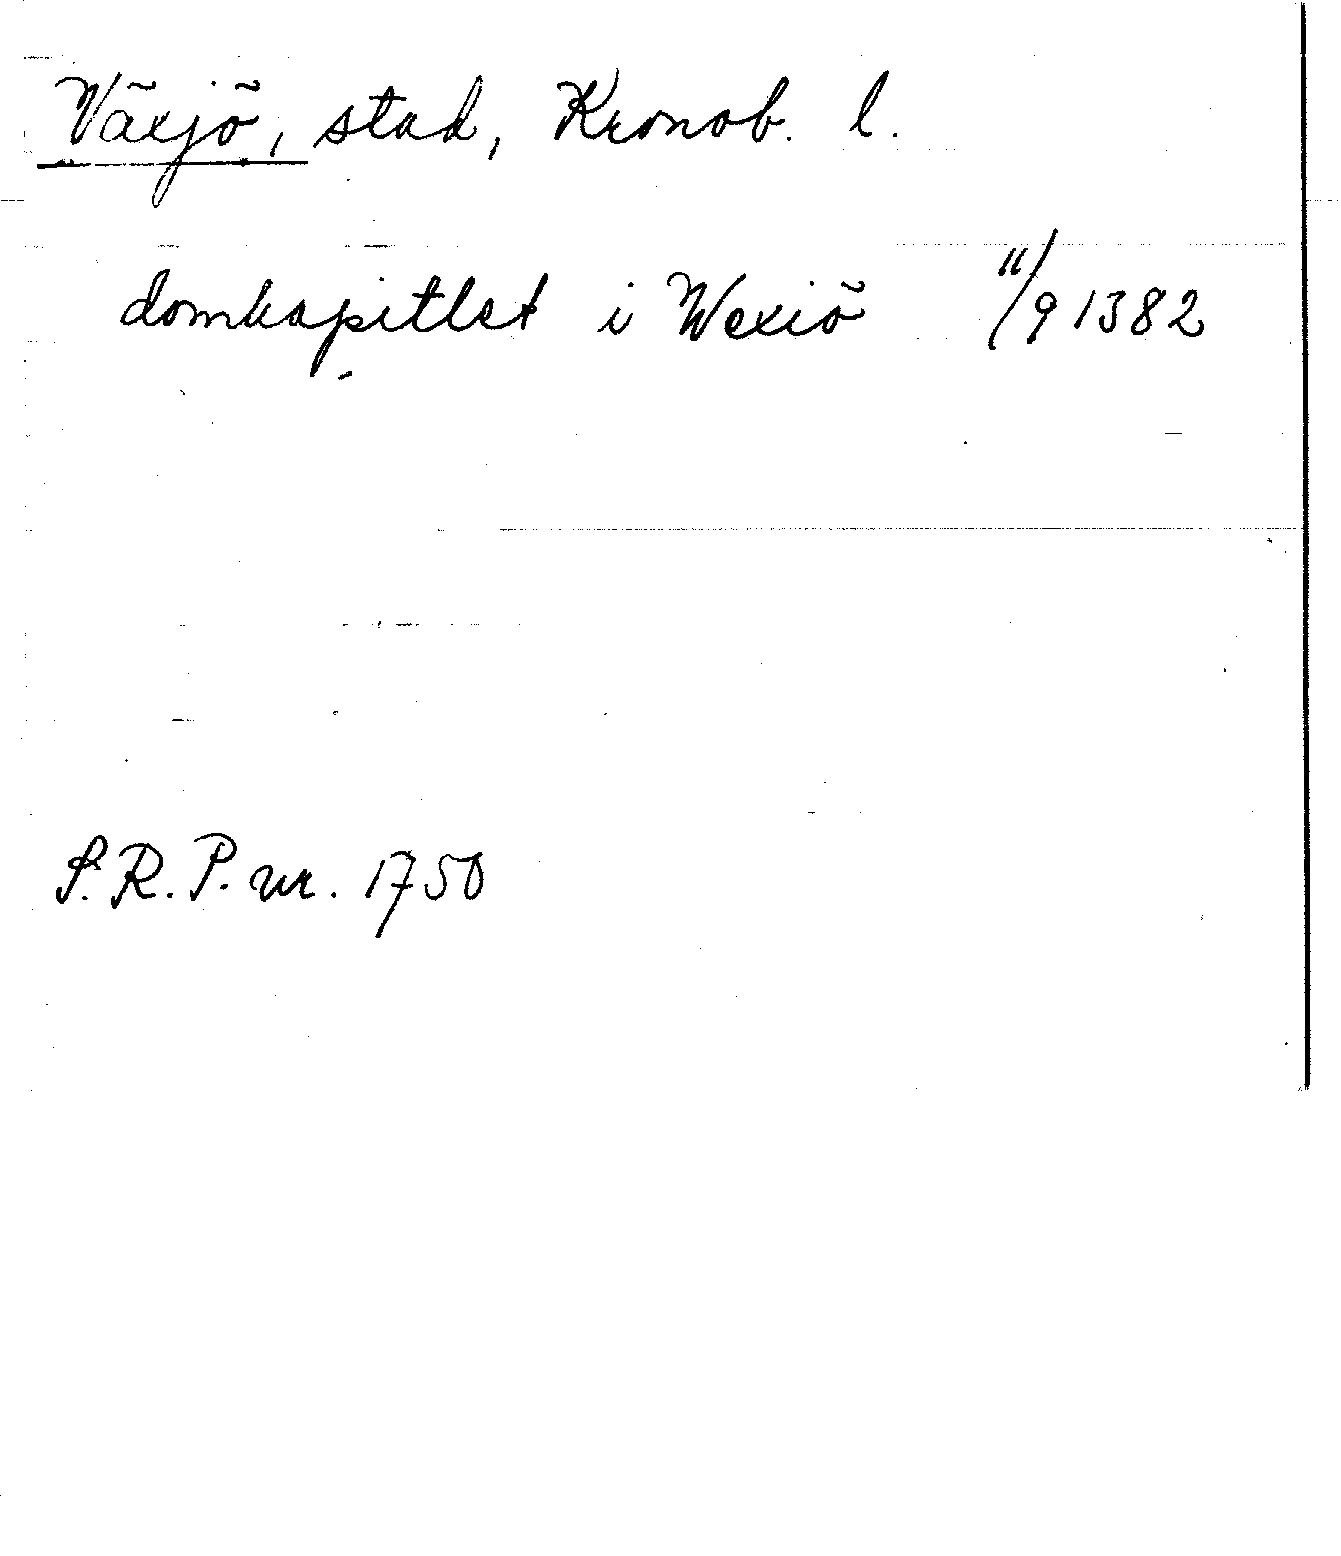 Växjö, stad, Kronob. l.
domkapitlet i Wexiö 11/9 1382
S.R.P. nr. 1750